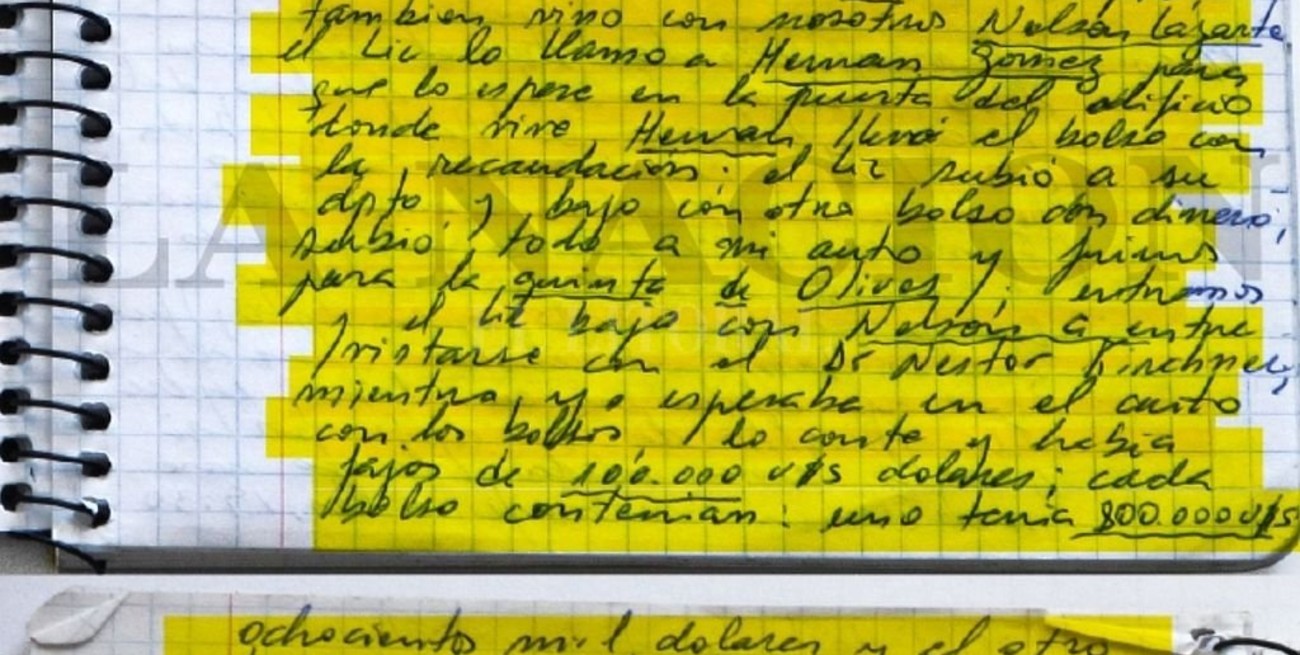 tambien vino con nosotros Nelson Lazarte
el Lic lo llamo a Hernan Gomez para
que lo espere en la puerta del edificio
donde vive Hernan llevó el bolso con
la recaudación; el Lic subió a su
dpto, y bajo con otro bolso con dinero;
subió todo a mi auto y fuimos
para la quinta de Olivos; entramos
y el Lic bajo con Nelson a entre
vistarse con el Dr Nestor Kirchner,
mientras yo esperaba en el auto
con los bolsos lo conte y habia
fajos de 100.000 U$S dolares; cada
bolso contenian: uno tenia 800.000 U$S
ochocientos mil dolares y el otro
LA NACION